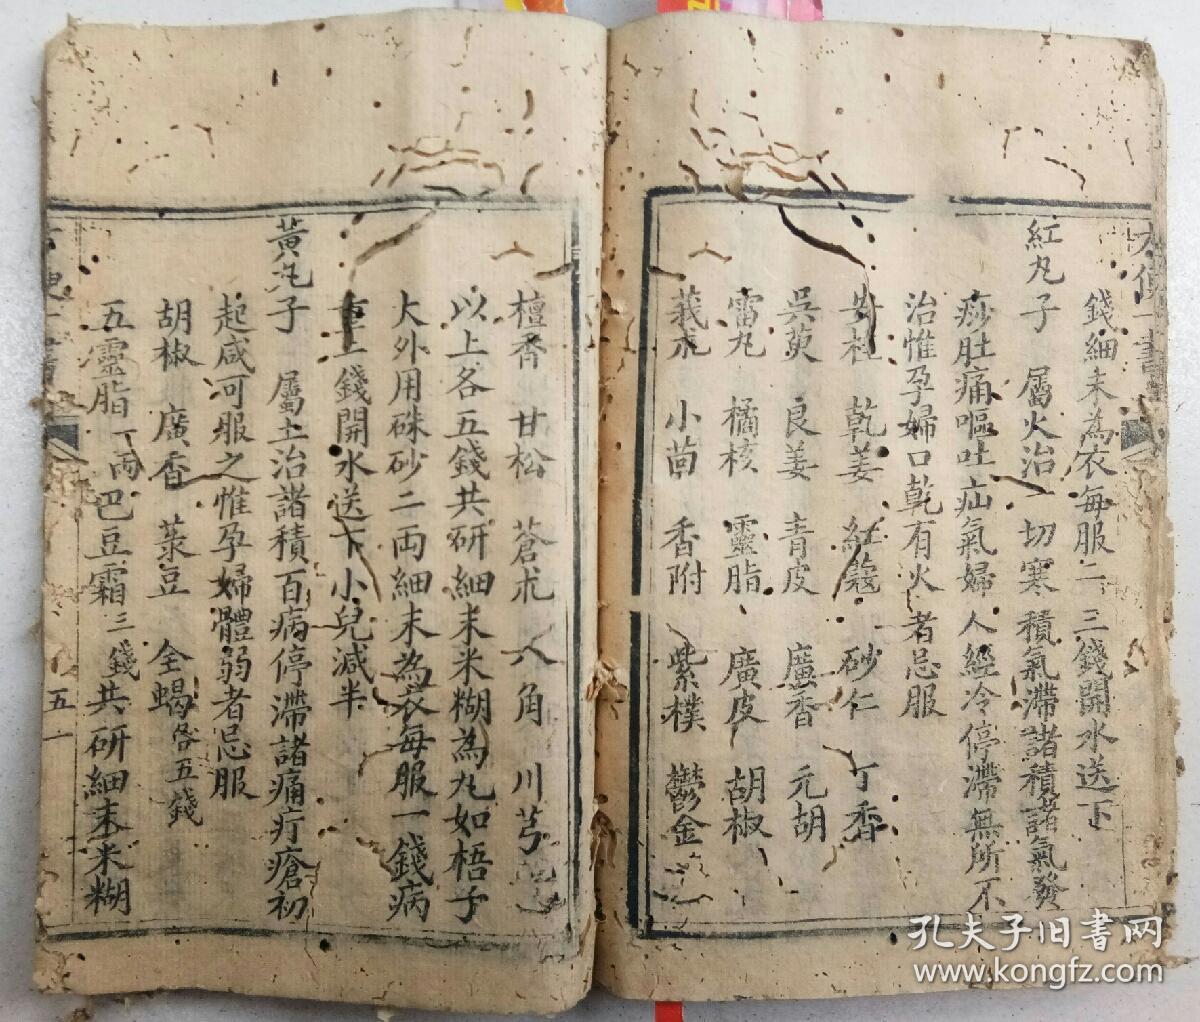 錢細末為衣每服二三錢開水送下
紅丸子 屬火治一切寒積氣滯諸積諸氣發
痧肚痛嘔吐疝氣婦人經冷停滯無所不
治惟孕婦口乾有火者忌服
安桂 乾姜 紅蔻 砂仁 丁香
吳萸 良姜 青皮 廣香 元胡
雷丸 橘核 靈脂 廣皮 胡椒
莪朮 小茴 香附 紫樸 鬱金
檀香 甘松 蒼朮 八角 川芎
以上各五錢共研細末米糊為丸如梧子
大外用硃砂二両細末為衣每服一錢病
重二錢開水送下小兒減半
黃丸子 屬土治諸積百病停滯諸痛疔瘡初
起咸可服之惟孕婦體弱者忌服
胡椒 廣香 菉豆 全蝎各五錢
五靈脂一両巴豆霜三錢共研細末米糊
五一
孔夫子旧书网
www.kongfz.com